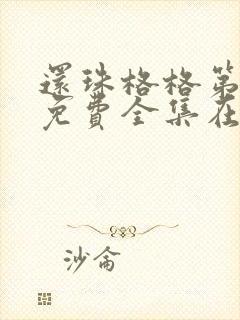 還珠格格第
免費全集在
沙侖